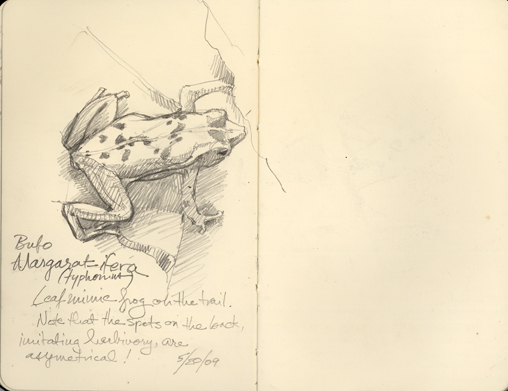 Bufo
Margarat ifera
(typhonius)
Leaf mimic frog on the trail.
Note that the spots on the back,
imitating herbivory, are
asymetrical!
5/20/09